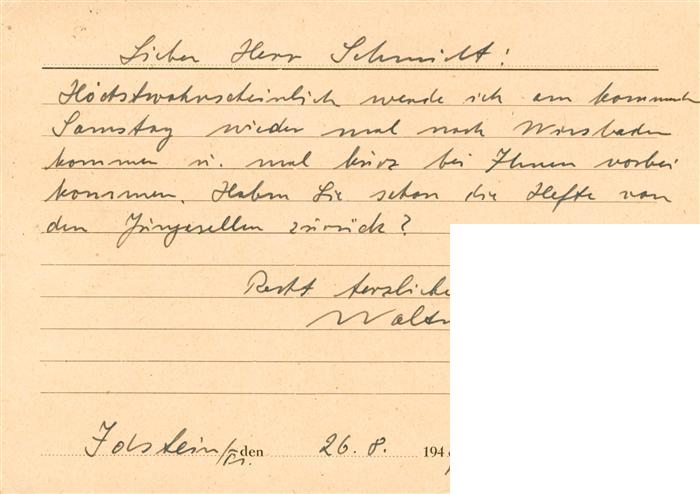 Lieber Herr Schmidt!
Höchstwahrscheinlich werde ich am kommenden
Samstag wieder mal nach Wiesbaden
kommen u. mal kurz bei Ihnen vorbei
kommen. Haben Sie schon die Hefte von
den Junggesellen zurück?
Recht herzliche
Walt
Idstein/Ts. den 26.8. 194